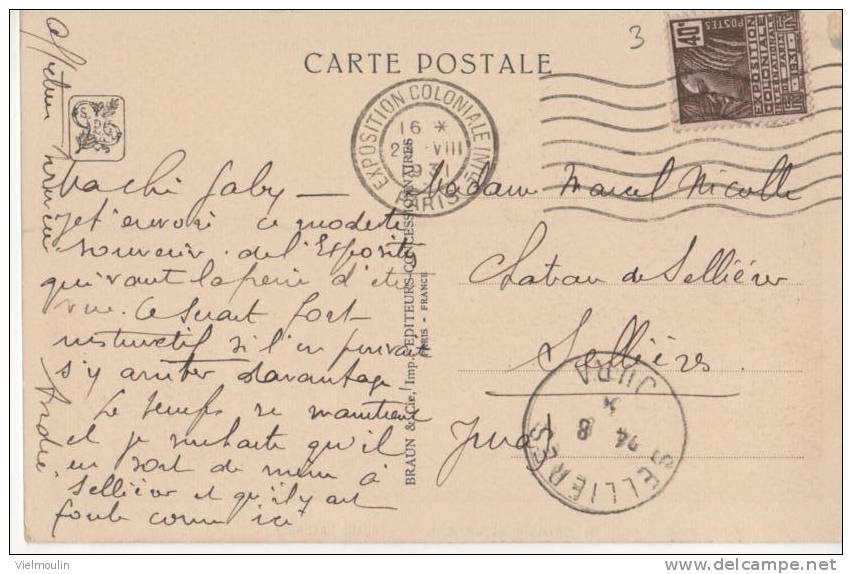 3
CARTE POSTALE
40c
POSTES
EXPOSITION
COLONIALE
INTERNATIONALE
PARIS 1931
EXPOSITION COLONIALE INT
16 *
VIII
31
PARIS
Ma chi Gaby —
je t'envoie ce modeste
souvenir de l'Exposition
qui vaut la peine d'être
vue. Ce serait fort
instructif si l'on pouvait
s'y arrêter davantage
Le temps se maintient
et je souhaite qu'il
en soit de même à
Sellières et qu'il y ait
foule comme ici
Andrée
BRAUN & Cie, Imp. EDITEURS-CONCESSIONNAIRES
PARIS - FRANCE
Madame Marcel Nicolle
Chateau de Sellières
Sellières
Jura
SELLIÈRES
JURA
24 8
Vielmoulin
delcampe.net